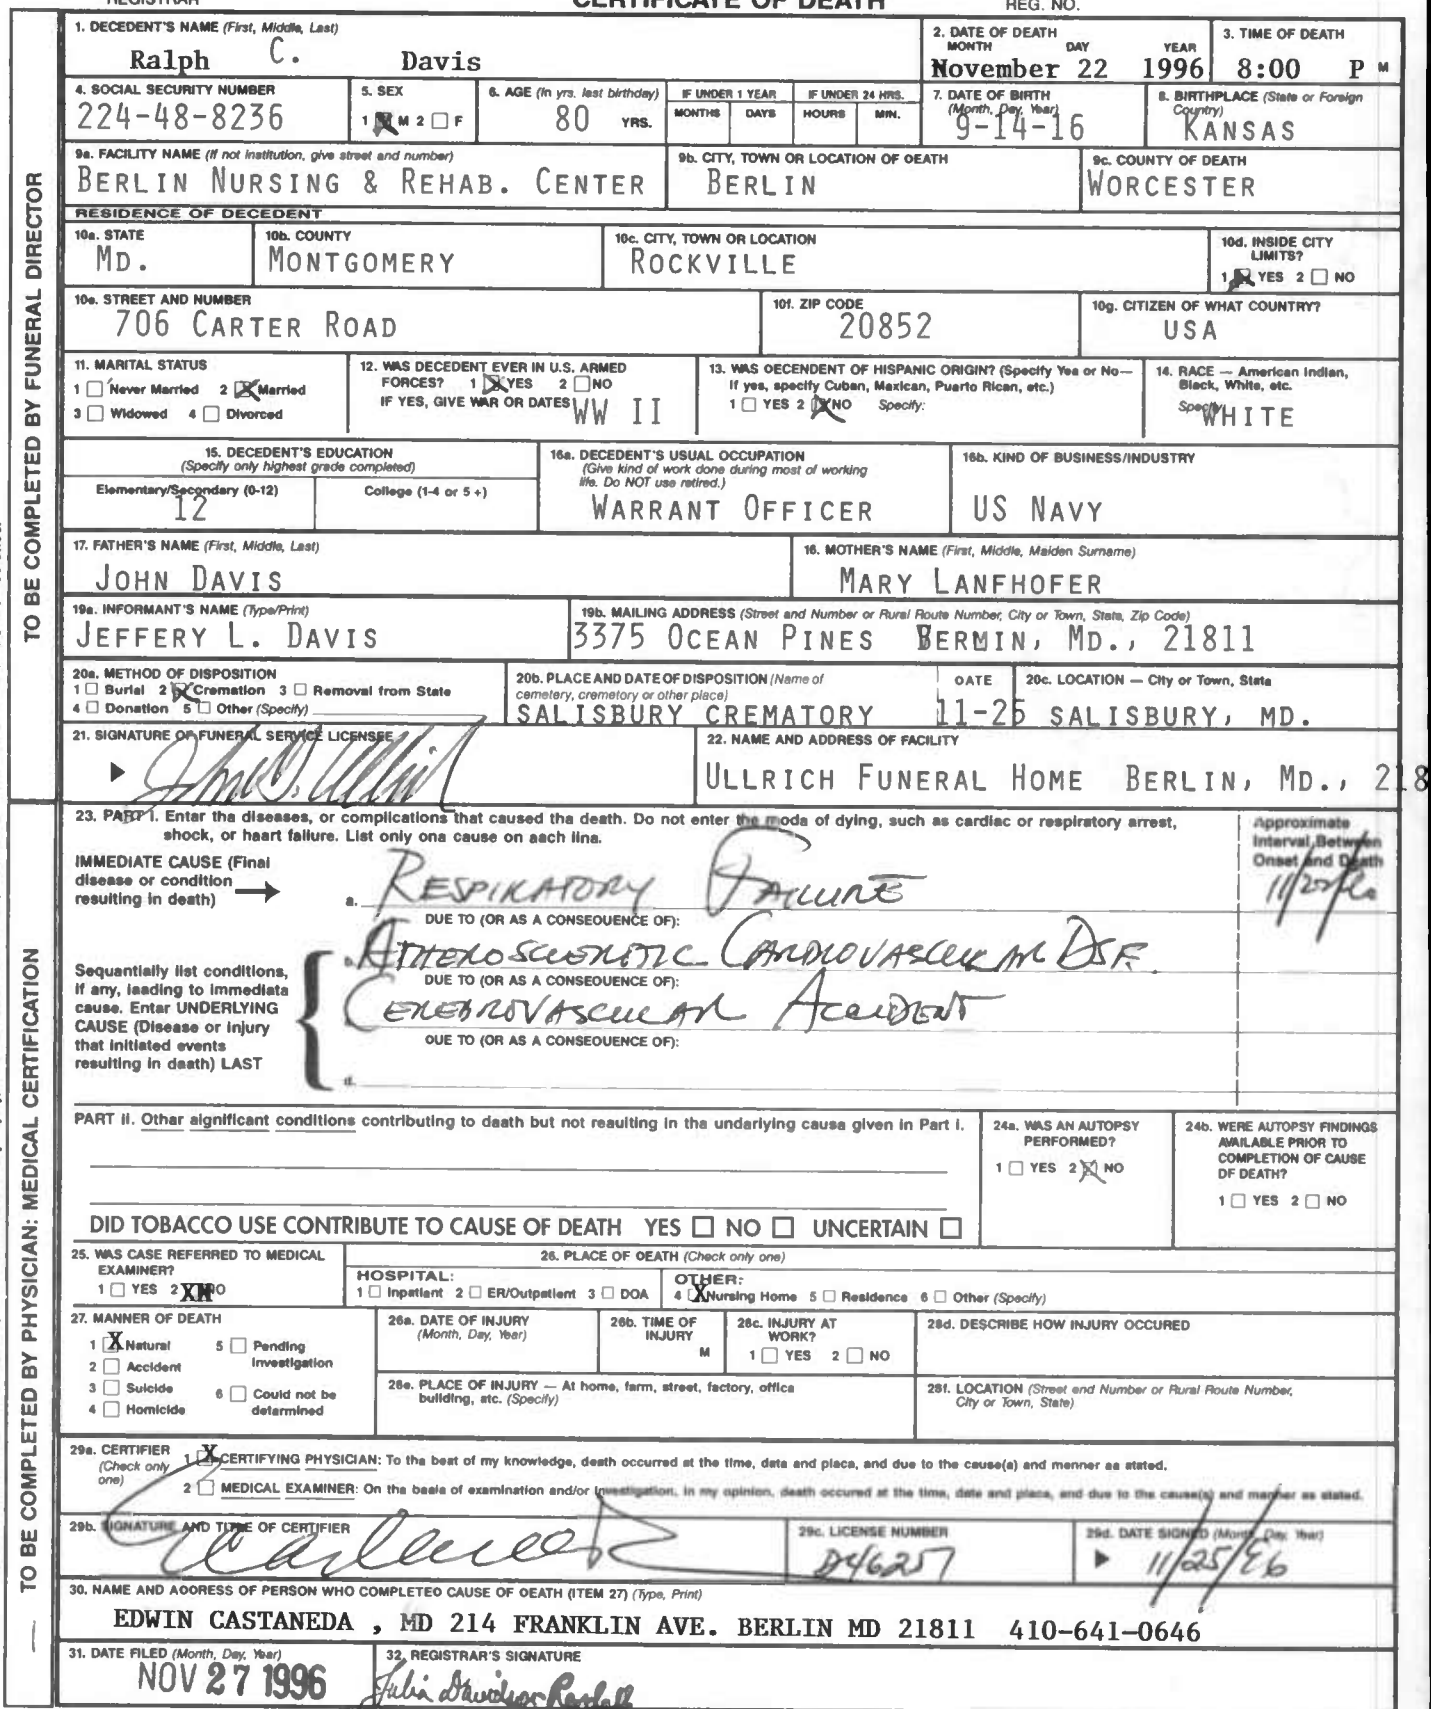 REGISTRAR CERTIFICATE OF DEATH REG. NO.
TO BE COMPLETED BY FUNERAL DIRECTOR
1. DECEDENT'S NAME (First, Middle, Last)
Ralph C. Davis
2. DATE OF DEATH
MONTH DAY YEAR
November 22 1996
3. TIME OF DEATH
8:00 P M
4. SOCIAL SECURITY NUMBER
224-48-8236
5. SEX
1 M 2 F
6. AGE (In yrs. last birthday)
80 YRS.
IF UNDER 1 YEAR
MONTHS DAYS
IF UNDER 24 HRS.
HOURS MIN.
7. DATE OF BIRTH
(Month, Day, Year)
9-14-16
8. BIRTHPLACE (State or Foreign
Country)
KANSAS
9a. FACILITY NAME (If not institution, give street and number)
BERLIN NURSING & REHAB. CENTER
9b. CITY, TOWN OR LOCATION OF DEATH
BERLIN
9c. COUNTY OF DEATH
WORCESTER
RESIDENCE OF DECEDENT
10a. STATE
MD.
10b. COUNTY
MONTGOMERY
10c. CITY, TOWN OR LOCATION
ROCKVILLE
10d. INSIDE CITY
LIMITS?
1 YES 2 NO
10e. STREET AND NUMBER
706 CARTER ROAD
10f. ZIP CODE
20852
10g. CITIZEN OF WHAT COUNTRY?
USA
11. MARITAL STATUS
1 Never Married 2 Married
3 Widowed 4 Divorced
12. WAS DECEDENT EVER IN U.S. ARMED
FORCES? 1 YES 2 NO
IF YES, GIVE WAR OR DATES WW II
13. WAS DECENDENT OF HISPANIC ORIGIN? (Specify Yes or No—
If yes, specify Cuban, Mexican, Puerto Rican, etc.)
1 YES 2 NO Specify:
14. RACE — American Indian,
Black, White, etc.
Specify WHITE
15. DECEDENT'S EDUCATION
(Specify only highest grade completed)
Elementary/Secondary (0-12) College (1-4 or 5+)
12
16a. DECEDENT'S USUAL OCCUPATION
(Give kind of work done during most of working
life. Do NOT use retired.)
WARRANT OFFICER
16b. KIND OF BUSINESS/INDUSTRY
US NAVY
17. FATHER'S NAME (First, Middle, Last)
JOHN DAVIS
18. MOTHER'S NAME (First, Middle, Maiden Surname)
MARY LANFHOFER
19a. INFORMANT'S NAME (Type/Print)
JEFFERY L. DAVIS
19b. MAILING ADDRESS (Street and Number or Rural Route Number, City or Town, State, Zip Code)
3375 OCEAN PINES BERMIN, MD., 21811
20a. METHOD OF DISPOSITION
1 Burial 2 Cremation 3 Removal from State
4 Donation 5 Other (Specify)
20b. PLACE AND DATE OF DISPOSITION (Name of
cemetery, crematory or other place)
SALISBURY CREMATORY
DATE
11-25
20c. LOCATION — City or Town, State
SALISBURY, MD.
21. SIGNATURE OF FUNERAL SERVICE LICENSEE
22. NAME AND ADDRESS OF FACILITY
ULLRICH FUNERAL HOME BERLIN, MD., 218
TO BE COMPLETED BY PHYSICIAN: MEDICAL CERTIFICATION
23. PART I. Enter the diseases, or complications that caused the death. Do not enter the mode of dying, such as cardiac or respiratory arrest,
shock, or heart failure. List only one cause on each line.
Approximate
Interval Between
Onset and Death
IMMEDIATE CAUSE (Final
disease or condition
resulting in death)
a. RESPIRATORY FAILURE
DUE TO (OR AS A CONSEQUENCE OF):
ATHEROSCLEROTIC CARDIOVASCULAR DSE.
DUE TO (OR AS A CONSEQUENCE OF):
CEREBROVASCULAR ACCIDENT
DUE TO (OR AS A CONSEQUENCE OF):
d.
Sequentially list conditions,
if any, leading to immediate
cause. Enter UNDERLYING
CAUSE (Disease or injury
that initiated events
resulting in death) LAST
PART II. Other significant conditions contributing to death but not resulting in the underlying cause given in Part I.
24a. WAS AN AUTOPSY
PERFORMED?
1 YES 2 NO
24b. WERE AUTOPSY FINDINGS
AVAILABLE PRIOR TO
COMPLETION OF CAUSE
OF DEATH?
1 YES 2 NO
DID TOBACCO USE CONTRIBUTE TO CAUSE OF DEATH YES NO UNCERTAIN
25. WAS CASE REFERRED TO MEDICAL
EXAMINER?
1 YES 2 NO
26. PLACE OF DEATH (Check only one)
HOSPITAL:
1 Inpatient 2 ER/Outpatient 3 DOA
OTHER:
4 X Nursing Home 5 Residence 6 Other (Specify)
27. MANNER OF DEATH
1 X Natural 5 Pending
Investigation
2 Accident
3 Suicide 6 Could not be
determined
4 Homicide
28a. DATE OF INJURY
(Month, Day, Year)
28b. TIME OF
INJURY
M
28c. INJURY AT
WORK?
1 YES 2 NO
28d. DESCRIBE HOW INJURY OCCURED
28e. PLACE OF INJURY — At home, farm, street, factory, office
building, etc. (Specify)
28f. LOCATION (Street and Number or Rural Route Number,
City or Town, State)
29a. CERTIFIER
(Check only
one)
1 X CERTIFYING PHYSICIAN: To the best of my knowledge, death occurred at the time, date and place, and due to the cause(s) and manner as stated.
2 MEDICAL EXAMINER: On the basis of examination and/or investigation, in my opinion, death occured at the time, date and place, and due to the cause(s) and manner as stated.
29b. SIGNATURE AND TITLE OF CERTIFIER
29c. LICENSE NUMBER
D46257
29d. DATE SIGNED (Month, Day, Year)
11/25/96
30. NAME AND ADDRESS OF PERSON WHO COMPLETED CAUSE OF DEATH (ITEM 27) (Type, Print)
EDWIN CASTANEDA , MD 214 FRANKLIN AVE. BERLIN MD 21811 410-641-0646
31. DATE FILED (Month, Day, Year)
NOV 27 1996
32. REGISTRAR'S SIGNATURE
Julia Davidson Randall